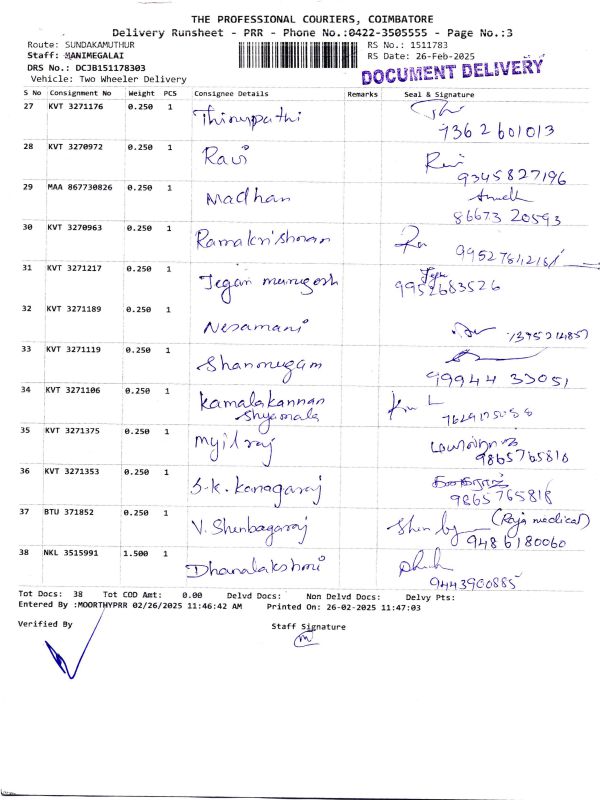 THE PROFESSIONAL COURIERS, COIMBATORE
Delivery Runsheet - PRR - Phone No.:0422-3505555 - Page No.:3
Route: SUNDAKAMUTHUR RS No.: 1511783
Staff: MANIMEGALAI RS Date: 26-Feb-2025
DRS No.: DCJB151178303 DOCUMENT DELIVERY
Vehicle: Two Wheeler Delivery
S No Consignment No Weight PCS Consignee Details Remarks Seal & Signature
27 KVT 3271176 0.250 1 Thirupathi
7362601013
28 KVT 3270972 0.250 1 Ravi Ravi
9345827196
29 MAA 867730826 0.250 1 Madhan
86673 20593
30 KVT 3270963 0.250 1 Ramakrishnan
31 KVT 3271217 0.250 1 Jegan murugesh
9952683526
32 KVT 3271189 0.250 1 Nesamani
33 KVT 3271119 0.250 1 Shanmugam
99944 33051
34 KVT 3271106 0.250 1 Kamalakannan
Shyamala
35 KVT 3271375 0.250 1 Myilraj
9865765818
36 KVT 3271353 0.250 1 S.K. Kanagaraj கனகராஜ்
9865765818
37 BTU 371852 0.250 1 V. Shenbagaraj (Raja medical)
9486180060
38 NKL 3515991 1.500 1 Dhanalakshmi
9443900885
Tot Docs: 38 Tot COD Amt: 0.00 Delvd Docs: Non Delvd Docs: Delvy Pts:
Entered By :MOORTHYPRR 02/26/2025 11:46:42 AM Printed On: 26-02-2025 11:47:03
Verified By Staff Signature